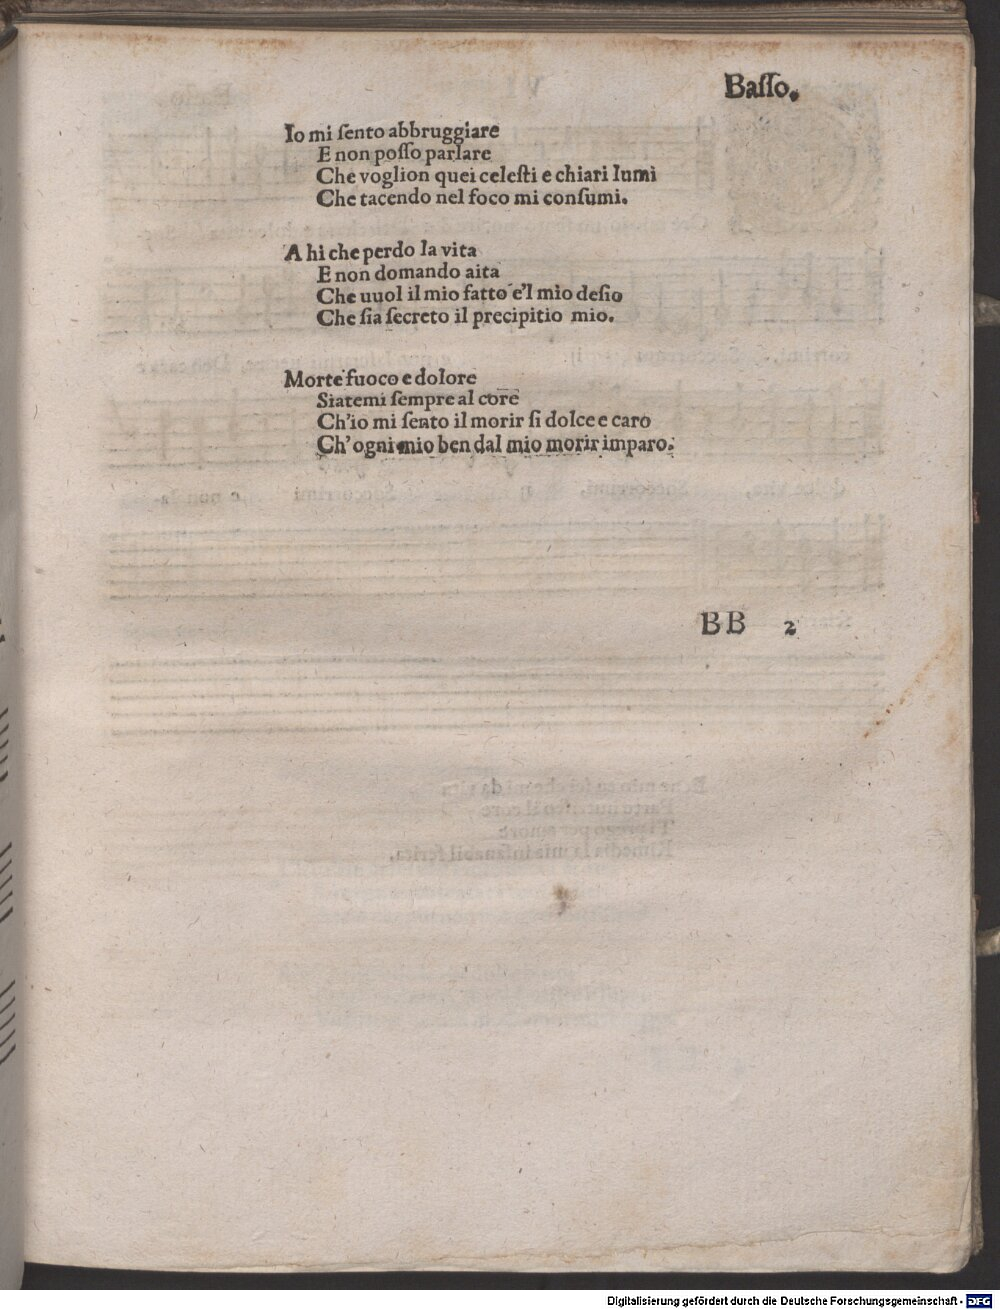 Baſſo.
Io mi ſento abbruggiare
E non poſſo parlare
Che voglion quei celeſti e chiari lumi
Che tacendo nel foco mi conſumi.
A hi che perdo la vita
E non domando aita
Che uuol il mio fatto e'l mio deſio
Che ſia ſecreto il precipitio mio.
Morte fuoco e dolore
Siatemi ſempre al core
Ch'io mi ſento il morir ſi dolce e caro
Ch'ogni mio ben dal mio morir imparo.
BB 2
Digitalisierung gefördert durch die Deutsche Forschungsgemeinschaft - DFG